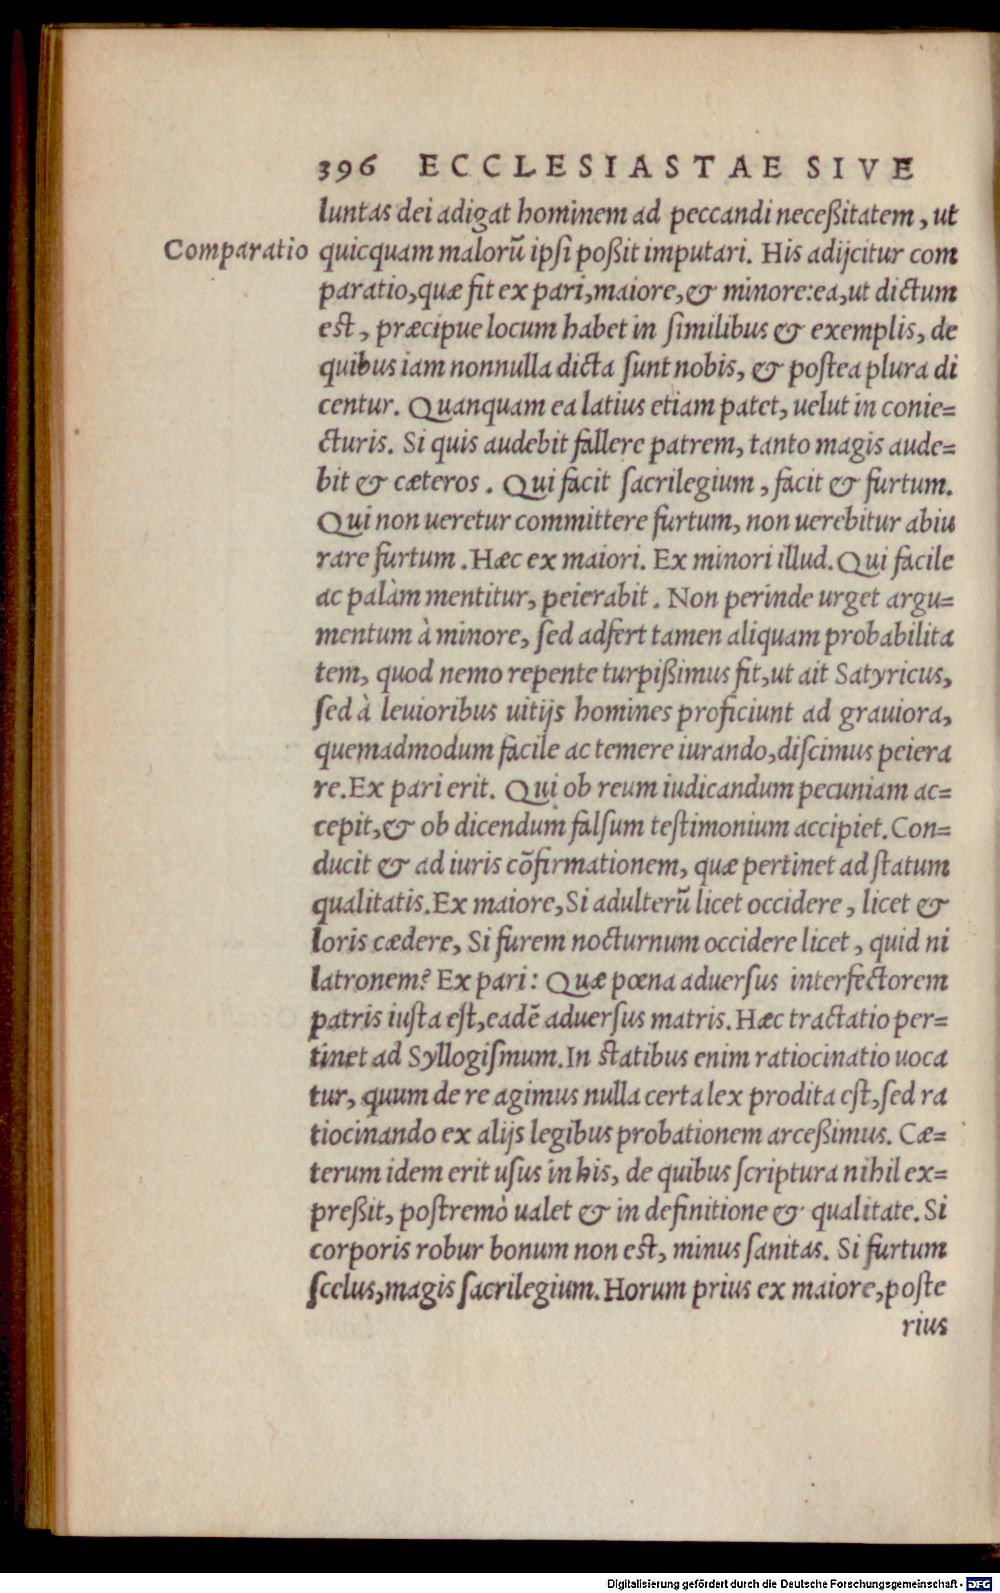 396 ECCLESIASTAE SIVE
luntas dei adigat hominem ad peccandi neceßitatem, ut
Comparatio
quicquam malorũ ipſi poßit imputari. His adijcitur com
paratio, quæ fit ex pari, maiore, & minore: ea, ut dictum
eſt, præcipue locum habet in ſimilibus & exemplis, de
quibus iam nonnulla dicta ſunt nobis, & poſtea plura di
centur. Quanquam ea latius etiam patet, uelut in conie=
cturis. Si quis audebit fallere patrem, tanto magis aude=
bit & cæteros. Qui facit ſacrilegium, facit & furtum.
Qui non ueretur committere furtum, non uerebitur abiu
rare furtum. Hæc ex maiori. Ex minori illud. Qui facile
ac palàm mentitur, peierabit. Non perinde urget argu=
mentum à minore, ſed adfert tamen aliquam probabilita
tem, quod nemo repente turpißimus fit, ut ait Satyricus,
ſed à leuioribus uitijs homines proficiunt ad grauiora,
quemadmodum facile ac temere iurando, diſcimus peiera
re. Ex pari erit. Qui ob reum iudicandum pecuniam ac=
cepit, & ob dicendum falſum teſtimonium accipiet. Con=
ducit & ad iuris cõfirmationem, quæ pertinet ad ſtatum
qualitatis. Ex maiore, Si adulterũ licet occidere, licet &
loris cædere, Si furem nocturnum occidere licet, quid ni
latronem? Ex pari: Quæ pœna aduerſus interfectorem
patris iuſta eſt, eadẽ aduerſus matris. Hæc tractatio per=
tinet ad Syllogiſmum. In ſtatibus enim ratiocinatio uoca
tur, quum de re agimus nulla certa lex prodita eſt, ſed ra
tiocinando ex alijs legibus probationem arceßimus. Cæ=
terum idem erit uſus in his, de quibus ſcriptura nihil ex=
preßit, poſtremò ualet & in definitione & qualitate. Si
corporis robur bonum non eſt, minus ſanitas. Si furtum
ſcelus, magis ſacrilegium. Horum prius ex maiore, poſte
rius
Digitalisierung gefördert durch die Deutsche Forschungsgemeinschaft - DFG